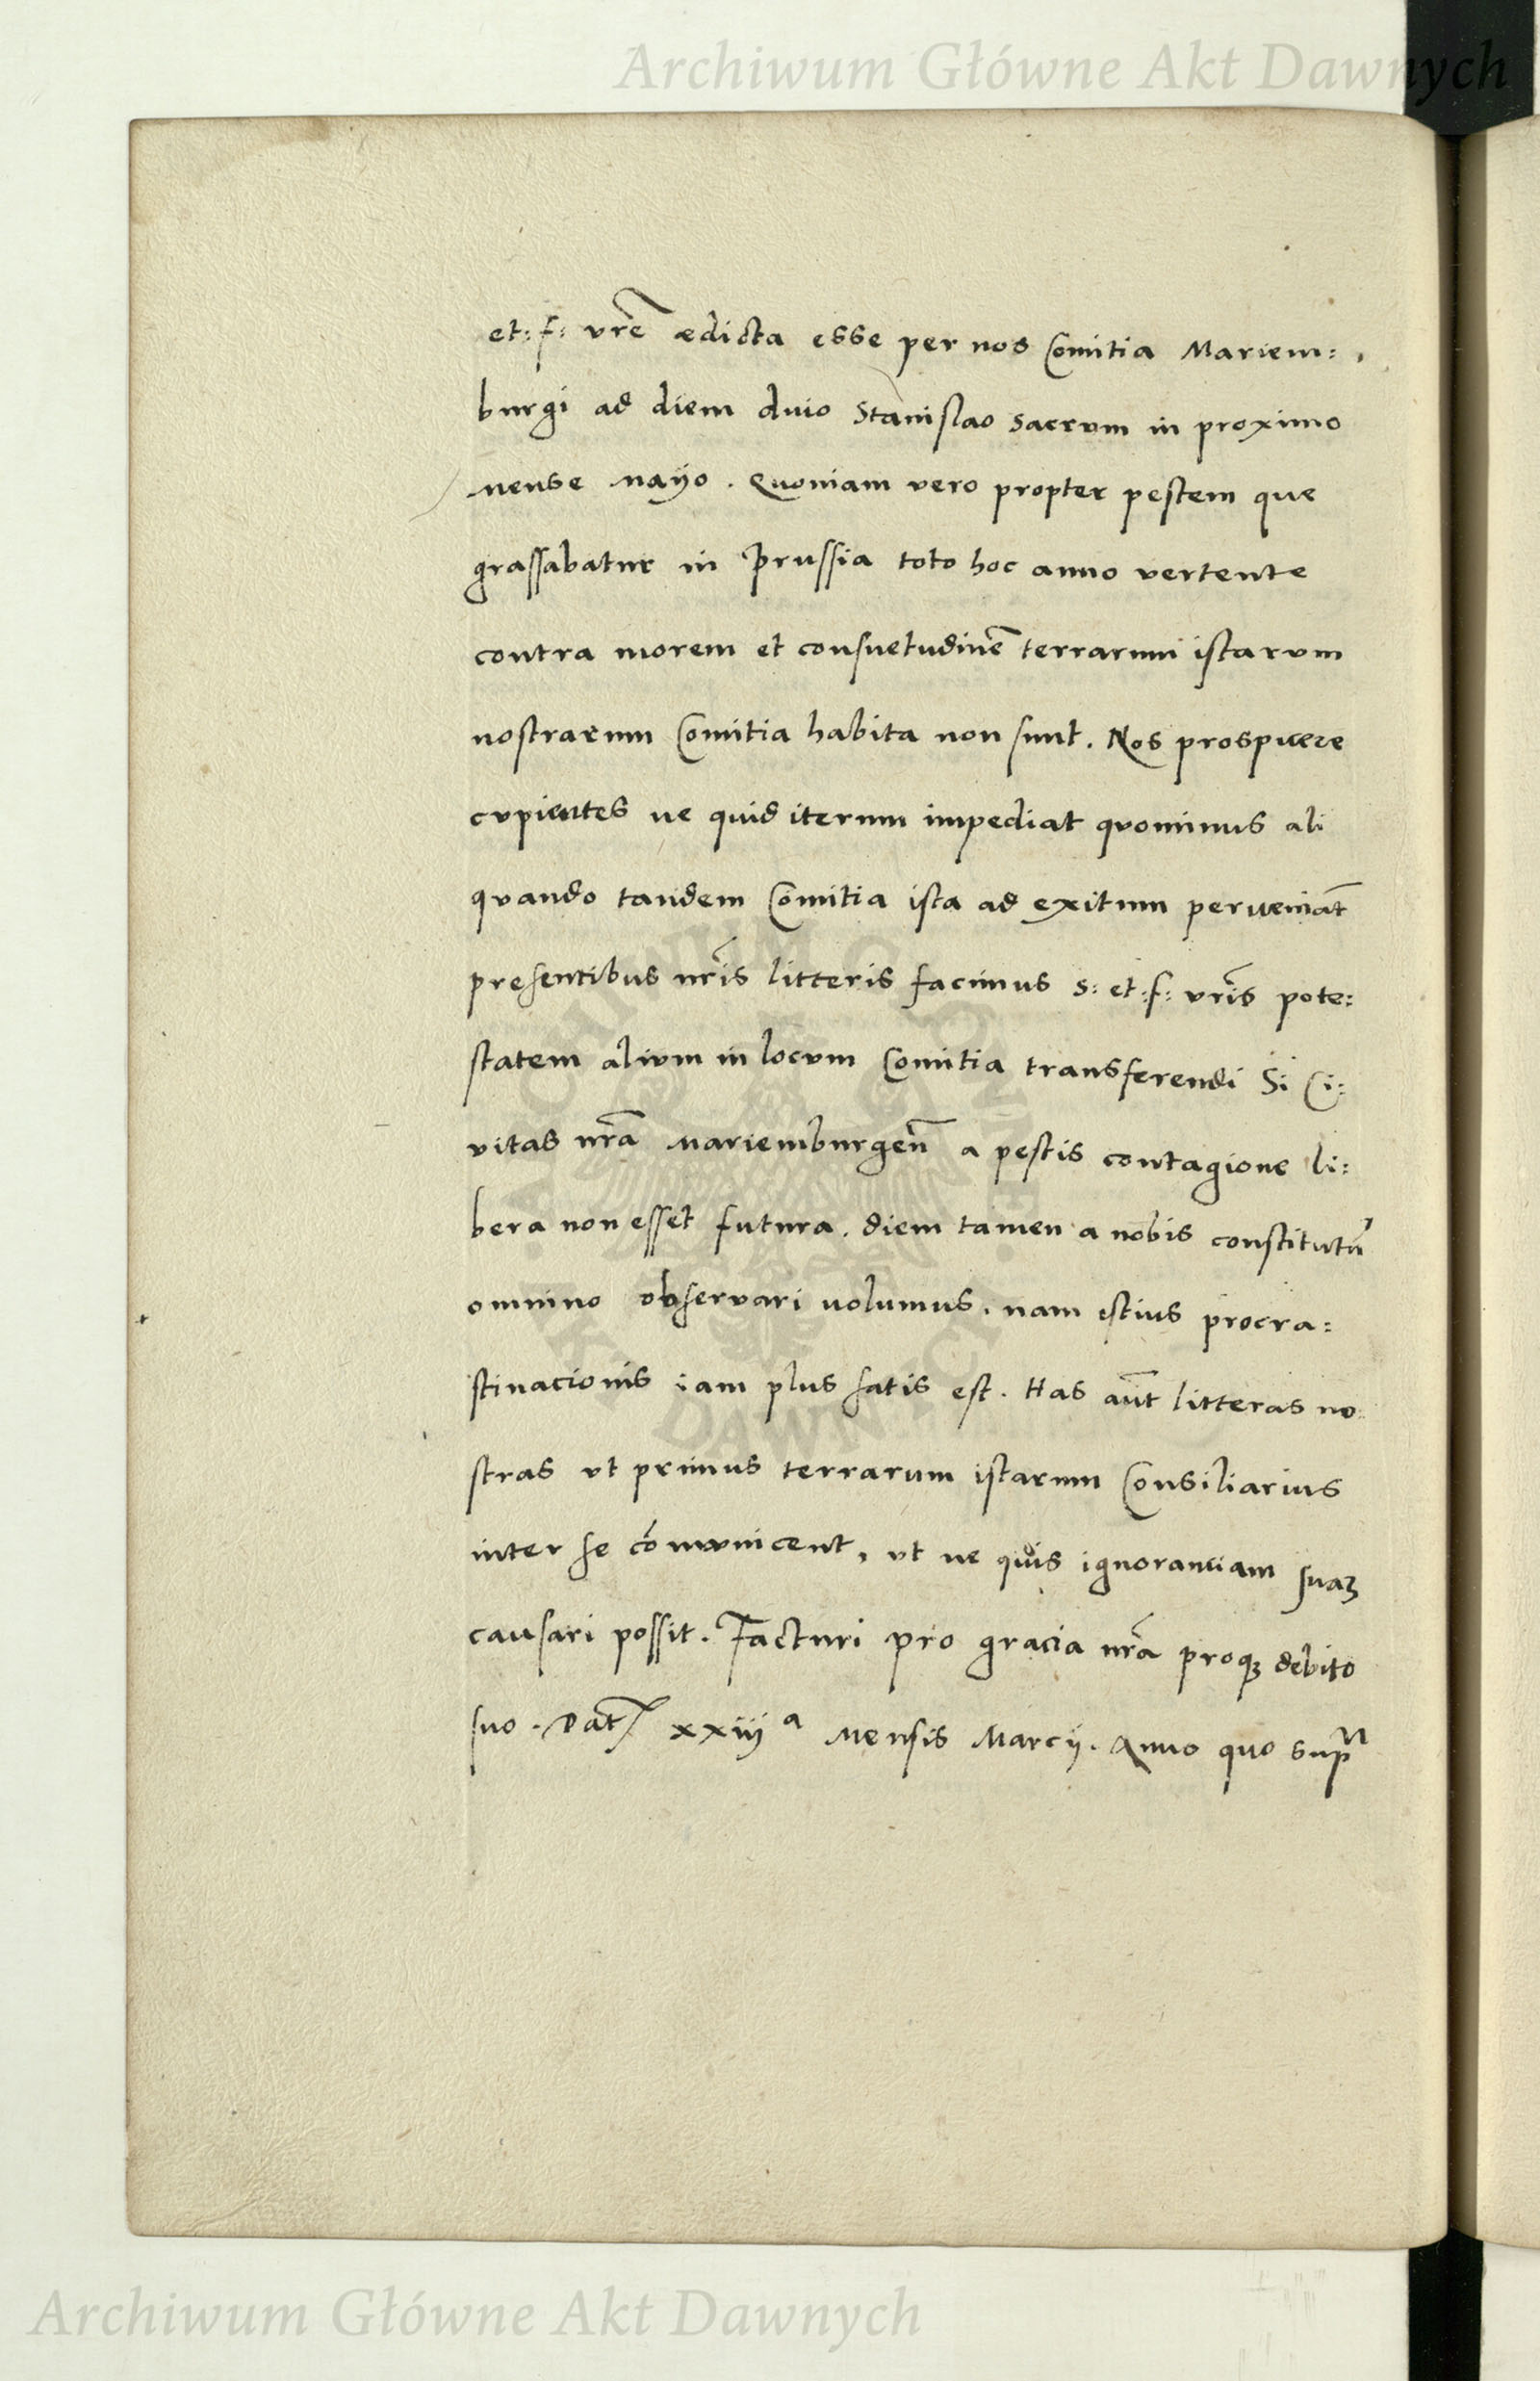 Archiwum Główne Akt Dawnych
et: f: vrē ædicta esse per nos Comitia Mariem:
burgi ad diem diuo Stanislao sacrum in proximo
mense Mayo. Quoniam vero propter pestem que
grassabatur in Prussia toto hoc anno vertente
contra morem et consuetudinē terrarum istarum
nostrarum Comitia habita non sunt. Nos prospicere
cupientes ne quid iterum impediat quominus ali
quando tandem Comitia ista ad exitum perueniāt
presentibus nrīs litteris facimus s: et: f: vrīs pote:
statem alium in locum Comitia transferendi Si Ci:
vitas nrā Mariemburgeñ a pestis contagione li:
bera non esset futura. diem tamen a nobis constitutū
omnino observari uolumus. nam istius procra:
stinacionis iam plus satis est. Has aūt litteras no
stras vt primus terrarum istarum Consiliarius
inter se cōmunicent, vt ne quis ignoranciam suaꝫ
causari possit. Facturi pro gracia nrā proqꝫ debito
suo. Dat̄ xxiijᵃ Mensis Marcij. Anno quo supᵃ
ARCHIWUM GŁÓWNE AKT DAWNYCH
Archiwum Główne Akt Dawnych